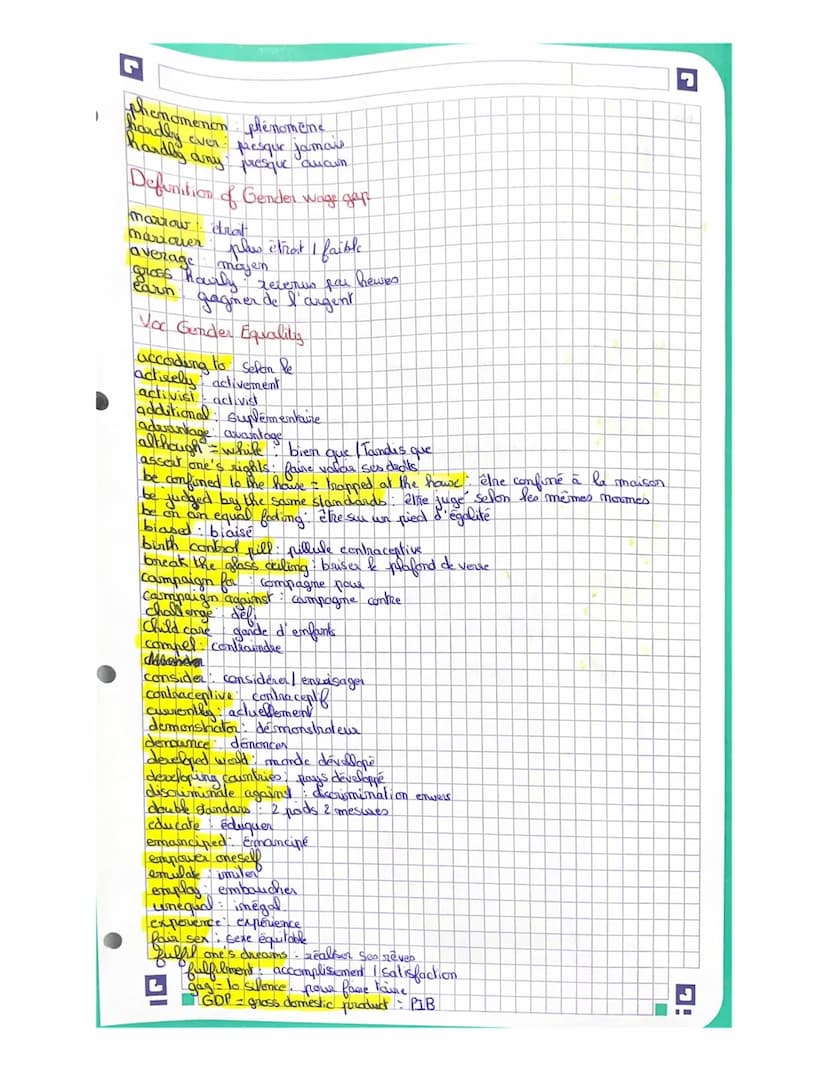 phenomenon : phénomène
hardly ever : presque jamais
hardly any : presque aucun
Definition of Gender wage gap
narrow : étroit
narrower : plus étroit / faible
average : moyen
gross hourly : revenus par heures
earn : gagner de l'argent
Voc Gender Equality
according to : selon le
actively : activement
activist : activist
additional : suplémentaire
advantage : avantage
although = while : bien que / Tandis que
assert one's rights : faire valoir ses droits
be confined to the house = trapped at the house : être confiné à la maison
be judged by the same standards : être jugé selon les mêmes normes
be on an equal footing : être sur un pied d'égalité
biased : biaisé
birth control pill : pillule contraceptive
break the glass ceiling : briser le plafond de verre
campaign for : compagne pour
campaign against : campagne contre
challenge : défi
child care : garde d'enfants
compel : contraindre
consider : considérer / envisager
contraceptive : contraceptif
currently : actuellement
demonstrator : démonstrateur
denounce : dénoncer
developed world : monde développé
developing countries : pays développé
discriminate against : discrimination envers
double standars : 2 poids 2 mesures
educate : éduquer
emanciped : émancipé
empower oneself
emulate : imiter
employ : embaucher
unequal : inégal
experience : expérience
fair sex : sexe équitable
fulfil one's dreams : réaliser ses rêves
fulfilment : accomplissement / satisfaction
gag = to silence : pour faire taire
GDP = gross domestic product : PIB